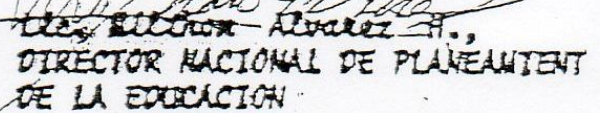 Lic. Alvarez H.,
DIRECTOR NACIONAL DE PLANEAMIENT
DE LA EDUCACION